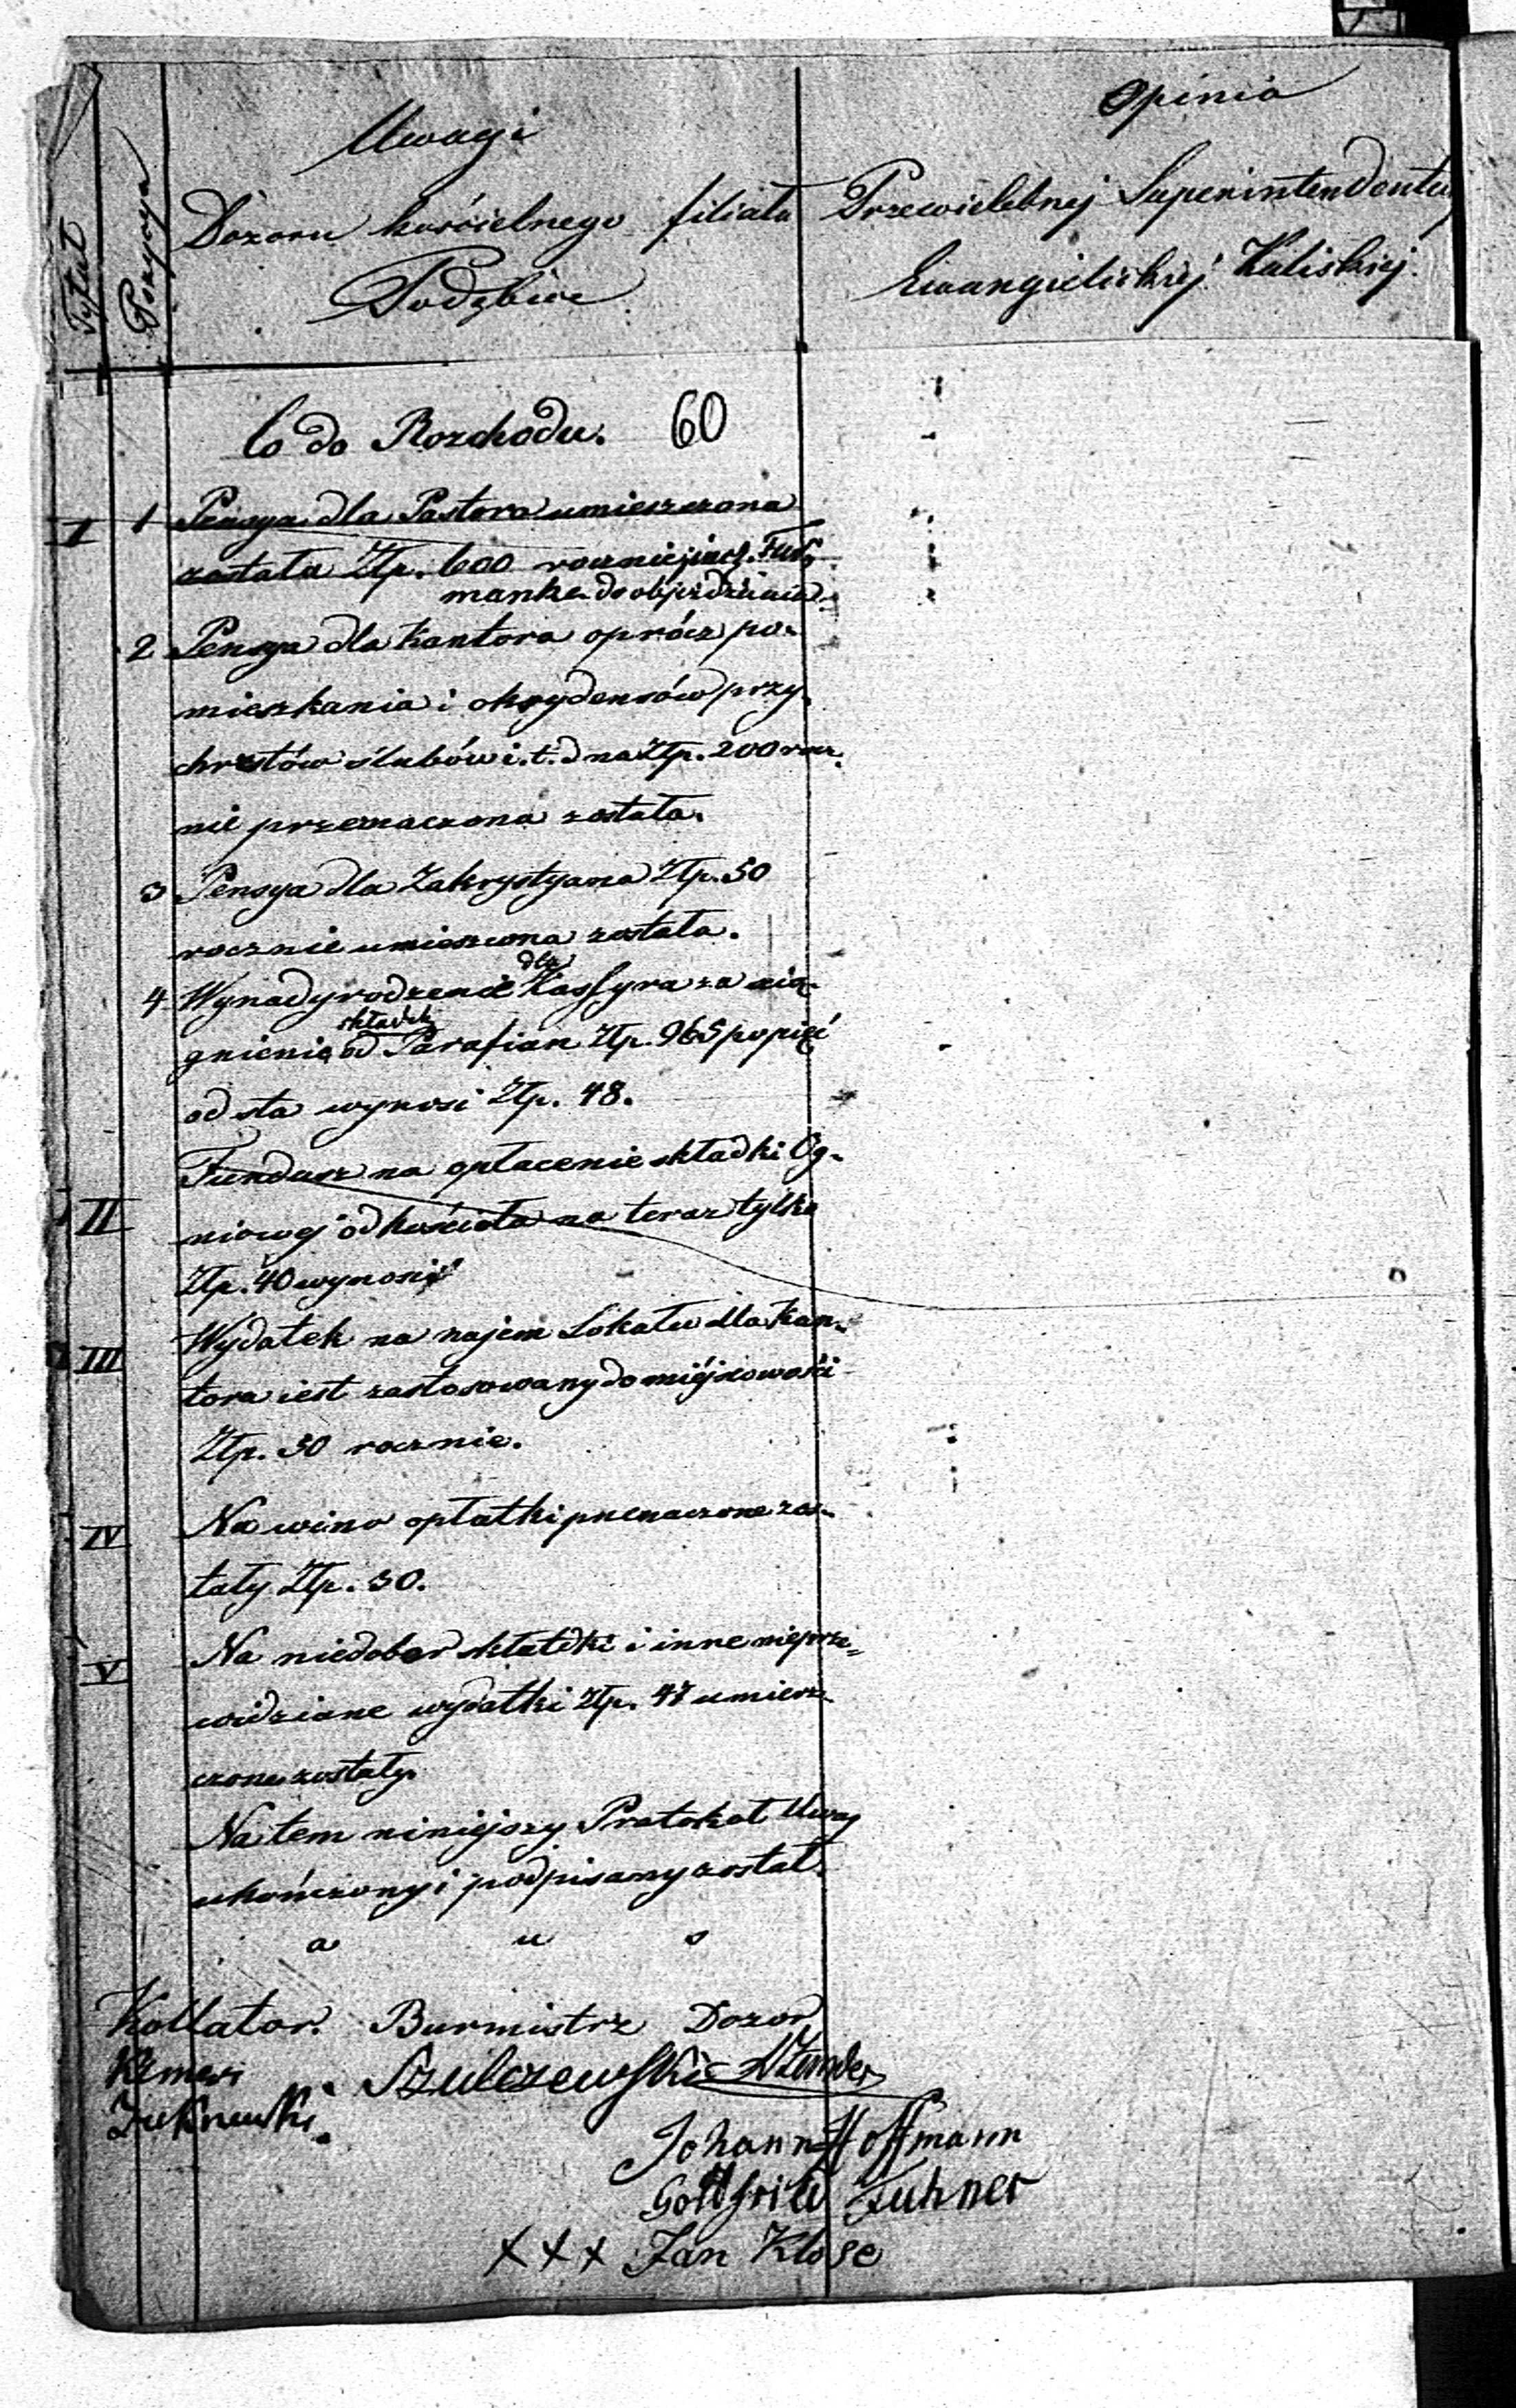 Tytuł
Pozycya
Uwagi
Dozoru kościelnego filiału
Poddębice
Opinia
Przewielebnej Superintendentury
Ewangielickiej Kaliskiej.
Co do Rozchodu. 60
I 1 Pensya dla Pastora umieszczona
została Złp. 600 rocznie, incl. Fur,
manka do objeżdżania.
2 Pensya dla kantora oprócz po-
mieszkania i akcydensów przy
chrztów ślubów i.t.d na Złp. 200 rocz,
nie przeznaczona została.
3 Pensya dla Zakrystyana Złp. 50
rocznie umieszczona została.
4 Wynadgrodzenie dla Kassyra za ścią-
gnienie składek od Parafian Złp. 965 po pięć
od sta wynosi Złp. 48.
II Fundusz na opłacenie składki Og-
niowej od kościoła na teraz tylko
Złp. 40 wynosi
III Wydatek na najem Lokalu dla kan-
tora iest zastosowany do miéjscowości
Złp. 50 rocznie.
IV Na wino opłatki przenaczone zos-
tały Złp. 30.
V Na niedobor składki i inne nieprze=
widziane wydatki Złp. 47 umiesz-
czone zostały.
Na tem niniejszy Protokół Uwag
ukończony i podpisany został.
a u s
Kollator. Burmistrz Dozor
Klemens Szulczewski
Johann Hoffmann
Gottfried Zuhner
XXX Jan Klose